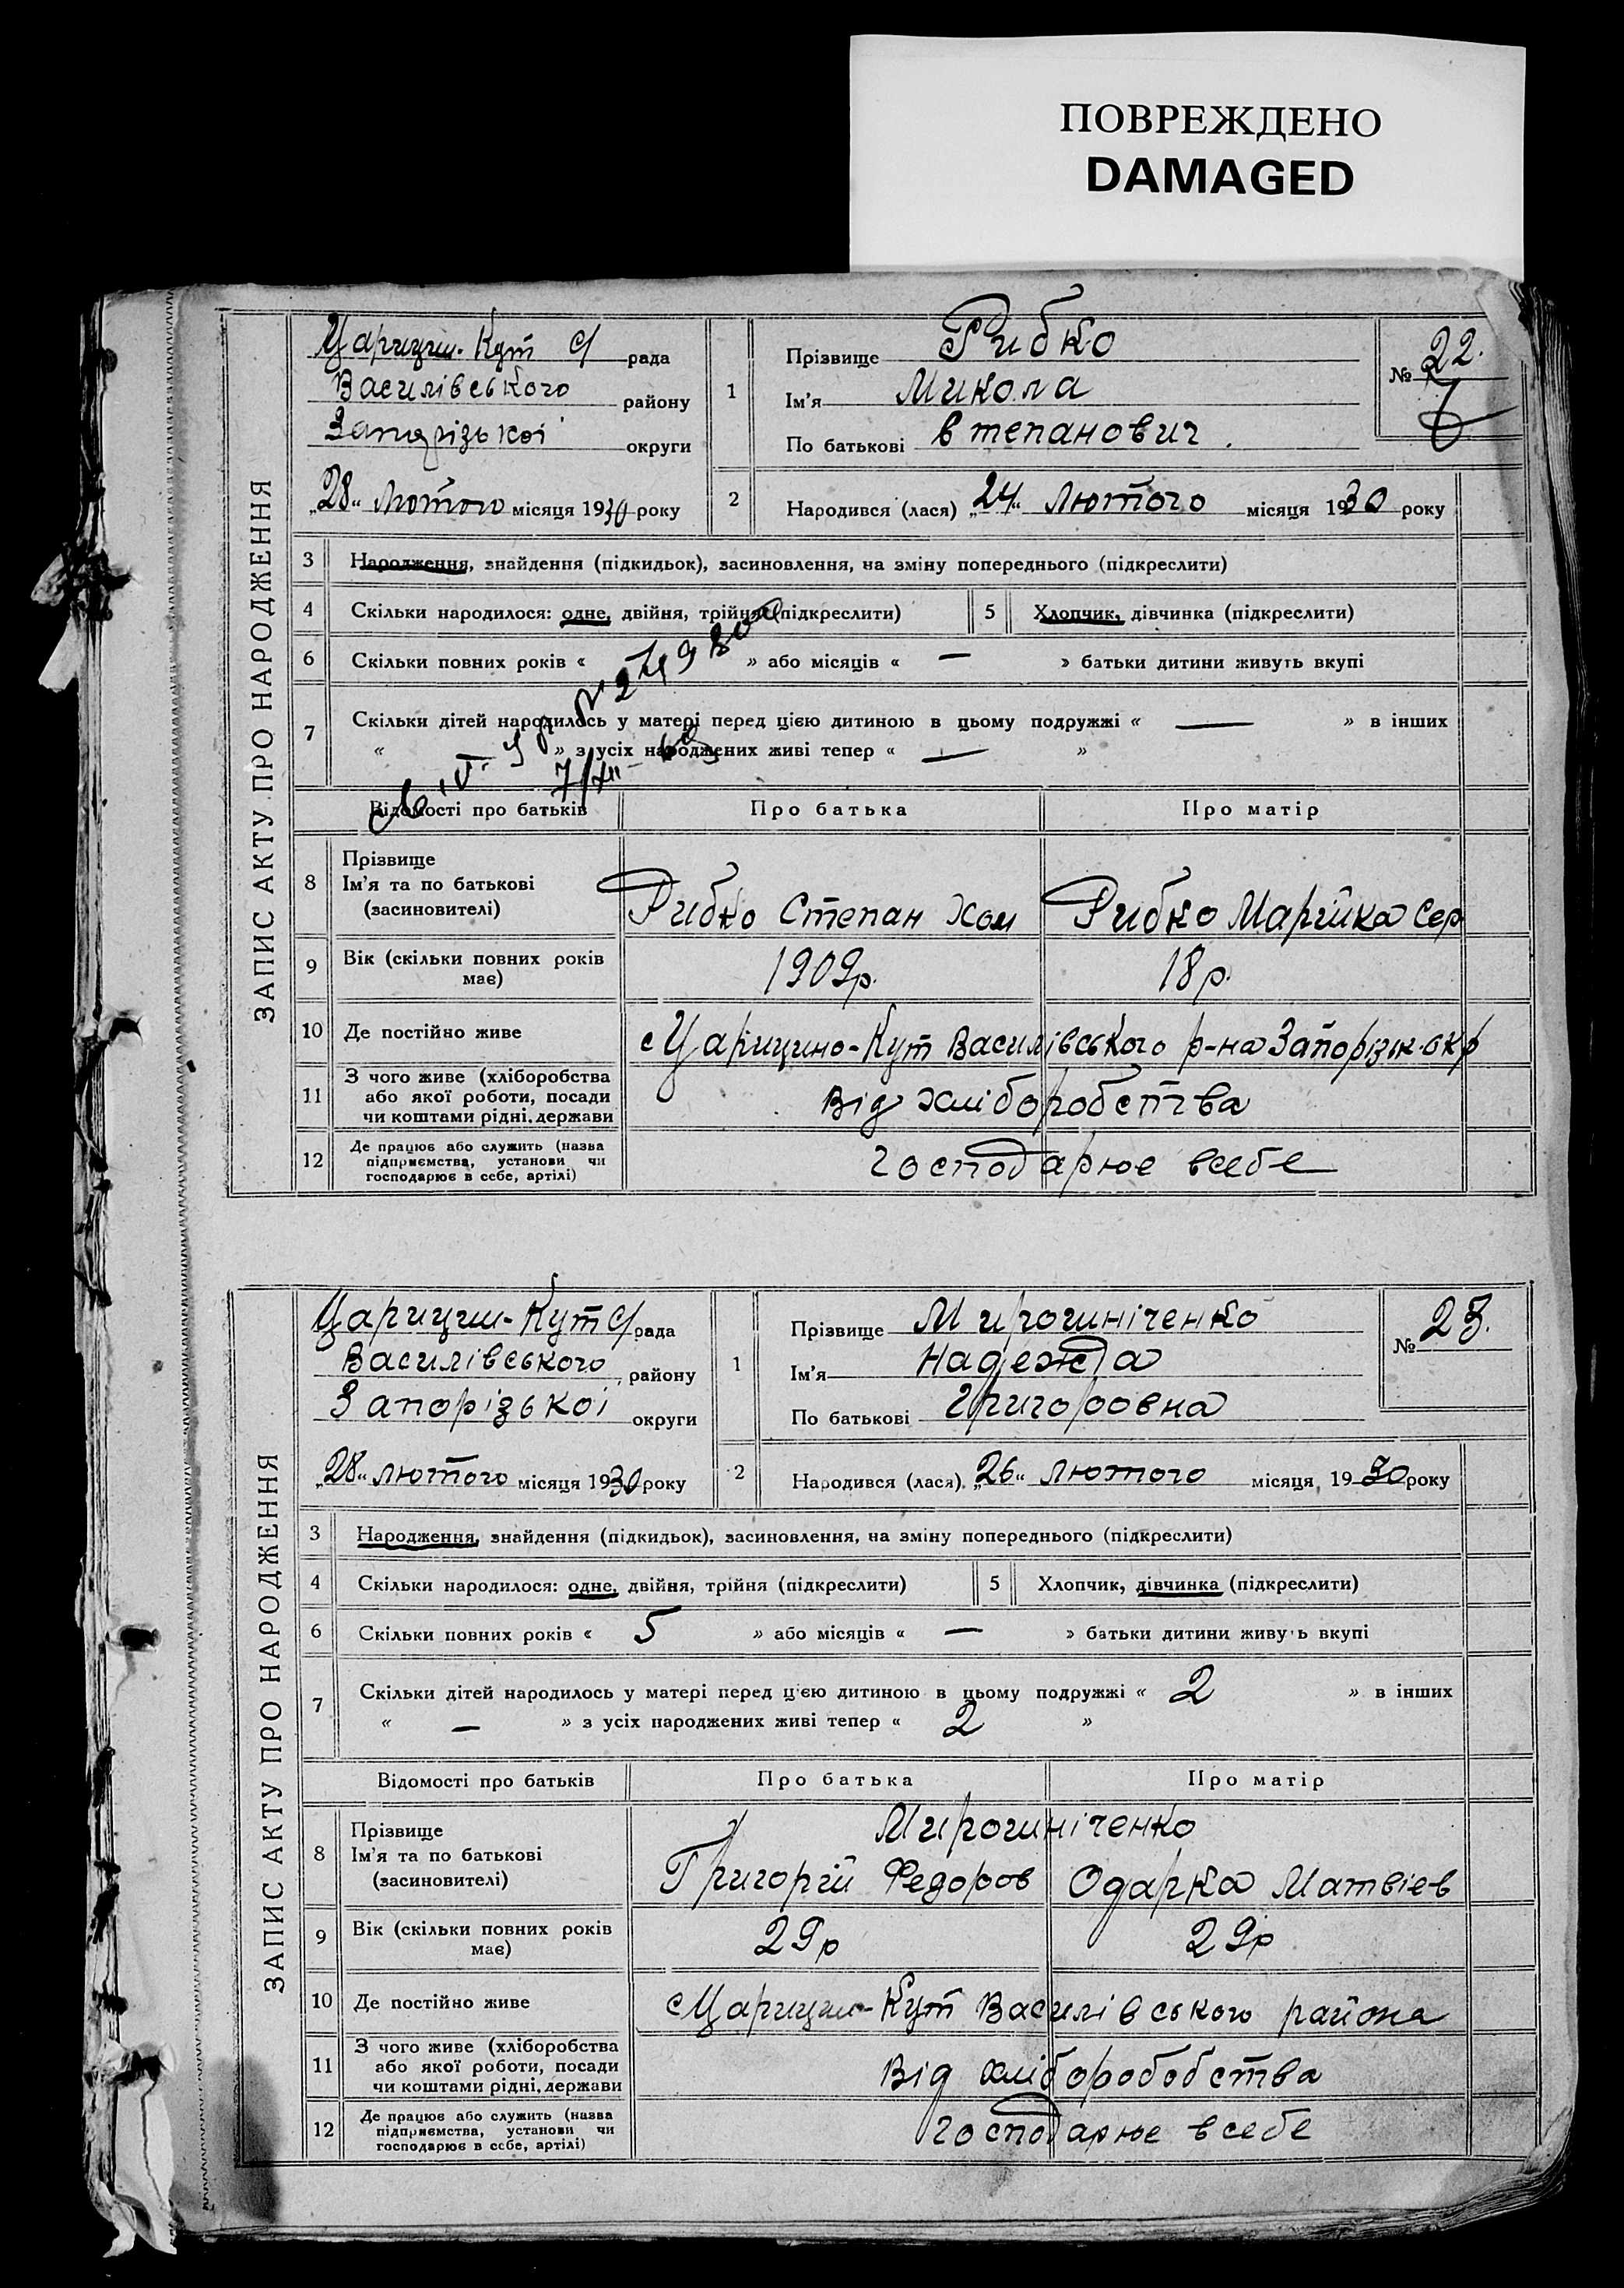 ПОВРЕЖДЕНО
DAMAGED
ЗАПИС АКТУ ПРО НАРОДЖЕННЯ
Царицин-Кут с/рада
Василівського району
Запорізької округи
„28“ лютого місяця 1930 року
1
Прізвище Рибко
Ім'я Микола
По батькові Степанович.
№ 22.
2
Народився (лася) „24“ лютого місяця 1930 року
3 Народження, знайдення (підкидьок), засиновлення, на зміну попереднього (підкреслити)
4 Скільки народилося: одне, двійня, трійня (підкреслити)
5 Хлопчик, дівчинка (підкреслити)
6 Скільки повних років « » або місяців « — » батьки дитини живуть вкупі
7 Скільки дітей народилось у матері перед цією дитиною в цьому подружжі « — » в інших
« » з усіх народжених живі тепер « — »
Відомості про батьків Про батька Про матір
8 Прізвище
Ім'я та по батькові
(засиновителі)
Рибко Степан Хом
Рибко Марійка Сер
9 Вік (скільки повних років
має)
1909р.
18р.
10 Де постійно живе
с Царицино-Кут Василівського р-на Запорізьк. окр
11 З чого живе (хліборобства
або якої роботи, посади
чи коштами рідні, держави
Від хліборобства
12 Де працює або служить (назва
підприємства, установи чи
господарює в себе, артілі)
господарює всебе
ЗАПИС АКТУ ПРО НАРОДЖЕННЯ
Царицин-Кут с/рада
Василівського району
Запорізької округи
„28“ лютого місяця 1930 року
1
Прізвище Мирошніченко
Ім'я Надежда
По батькові Григоровна
№ 23.
2
Народився (лася) „26“ лютого місяця 1930 року
3 Народження, знайдення (підкидьок), засиновлення, на зміну попереднього (підкреслити)
4 Скільки народилося: одне, двійня, трійня (підкреслити)
5 Хлопчик, дівчинка (підкреслити)
6 Скільки повних років « 5 » або місяців « — » батьки дитини живуть вкупі
7 Скільки дітей народилось у матері перед цією дитиною в цьому подружжі « 2 » в інших
« — » з усіх народжених живі тепер « 2 »
Відомості про батьків Про батька Про матір
8 Прізвище
Ім'я та по батькові
(засиновителі)
Мирошніченко
Григорій Федоров
Одарка Матвіев
9 Вік (скільки повних років
має)
29р
29р
10 Де постійно живе
с Царицин-Кут Василівського района
11 З чого живе (хліборобства
або якої роботи, посади
чи коштами рідні, держави
Від хлібороробства
12 Де працює або служить (назва
підприємства, установи чи
господарює в себе, артілі)
господарює всебе